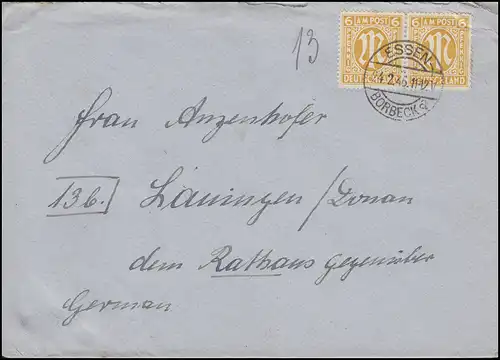 13
6 AM POST 6 6 AM POST 6
M M
DEUTSCHLAND DEUTSCHLAND
ESSEN-
BORBECK
Frau Anzenhofer
13b. Lauingen/Donau
dem Rathaus gegenüber
German